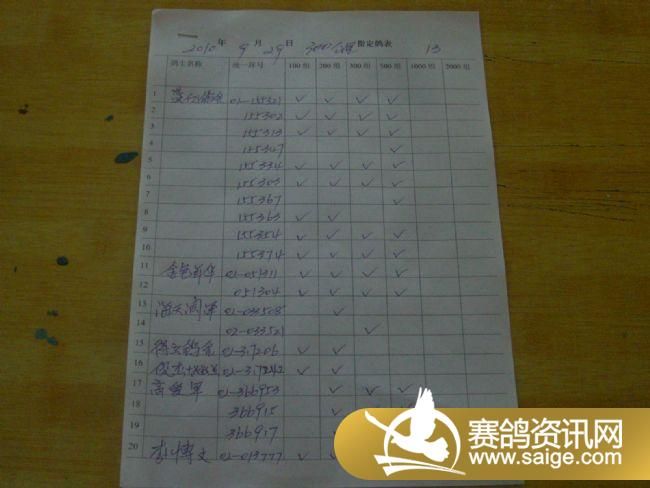 2010年 9月 29日 300公里指定鸽表 13
鸽士名称 统一环号 100组 200组 300组 500组 1000组 2000组
1 02-155321 ✓ ✓ ✓ ✓
2 155302 ✓ ✓ ✓ ✓
3 155313 ✓ ✓ ✓ ✓
4 155347 ✓
5 155334 ✓ ✓ ✓ ✓
6 155303 ✓ ✓ ✓ ✓
7 155367 ✓
8 155363 ✓ ✓
9 155354 ✓ ✓ ✓ ✓
10 155374 ✓ ✓ ✓ ✓
11 金色年华 02-051311 ✓ ✓ ✓ ✓
12 051304 ✓ ✓ ✓ ✓
13 02-033508 ✓
14 02-033521 ✓
15 02-317206 ✓ ✓
16 02-317242 ✓ ✓
17 高爱军 02-366953 ✓ ✓ ✓
18 366915 ✓
19 366917 ✓
20 李博文 02-013777 ✓
赛鸽资讯网
www.saige.com